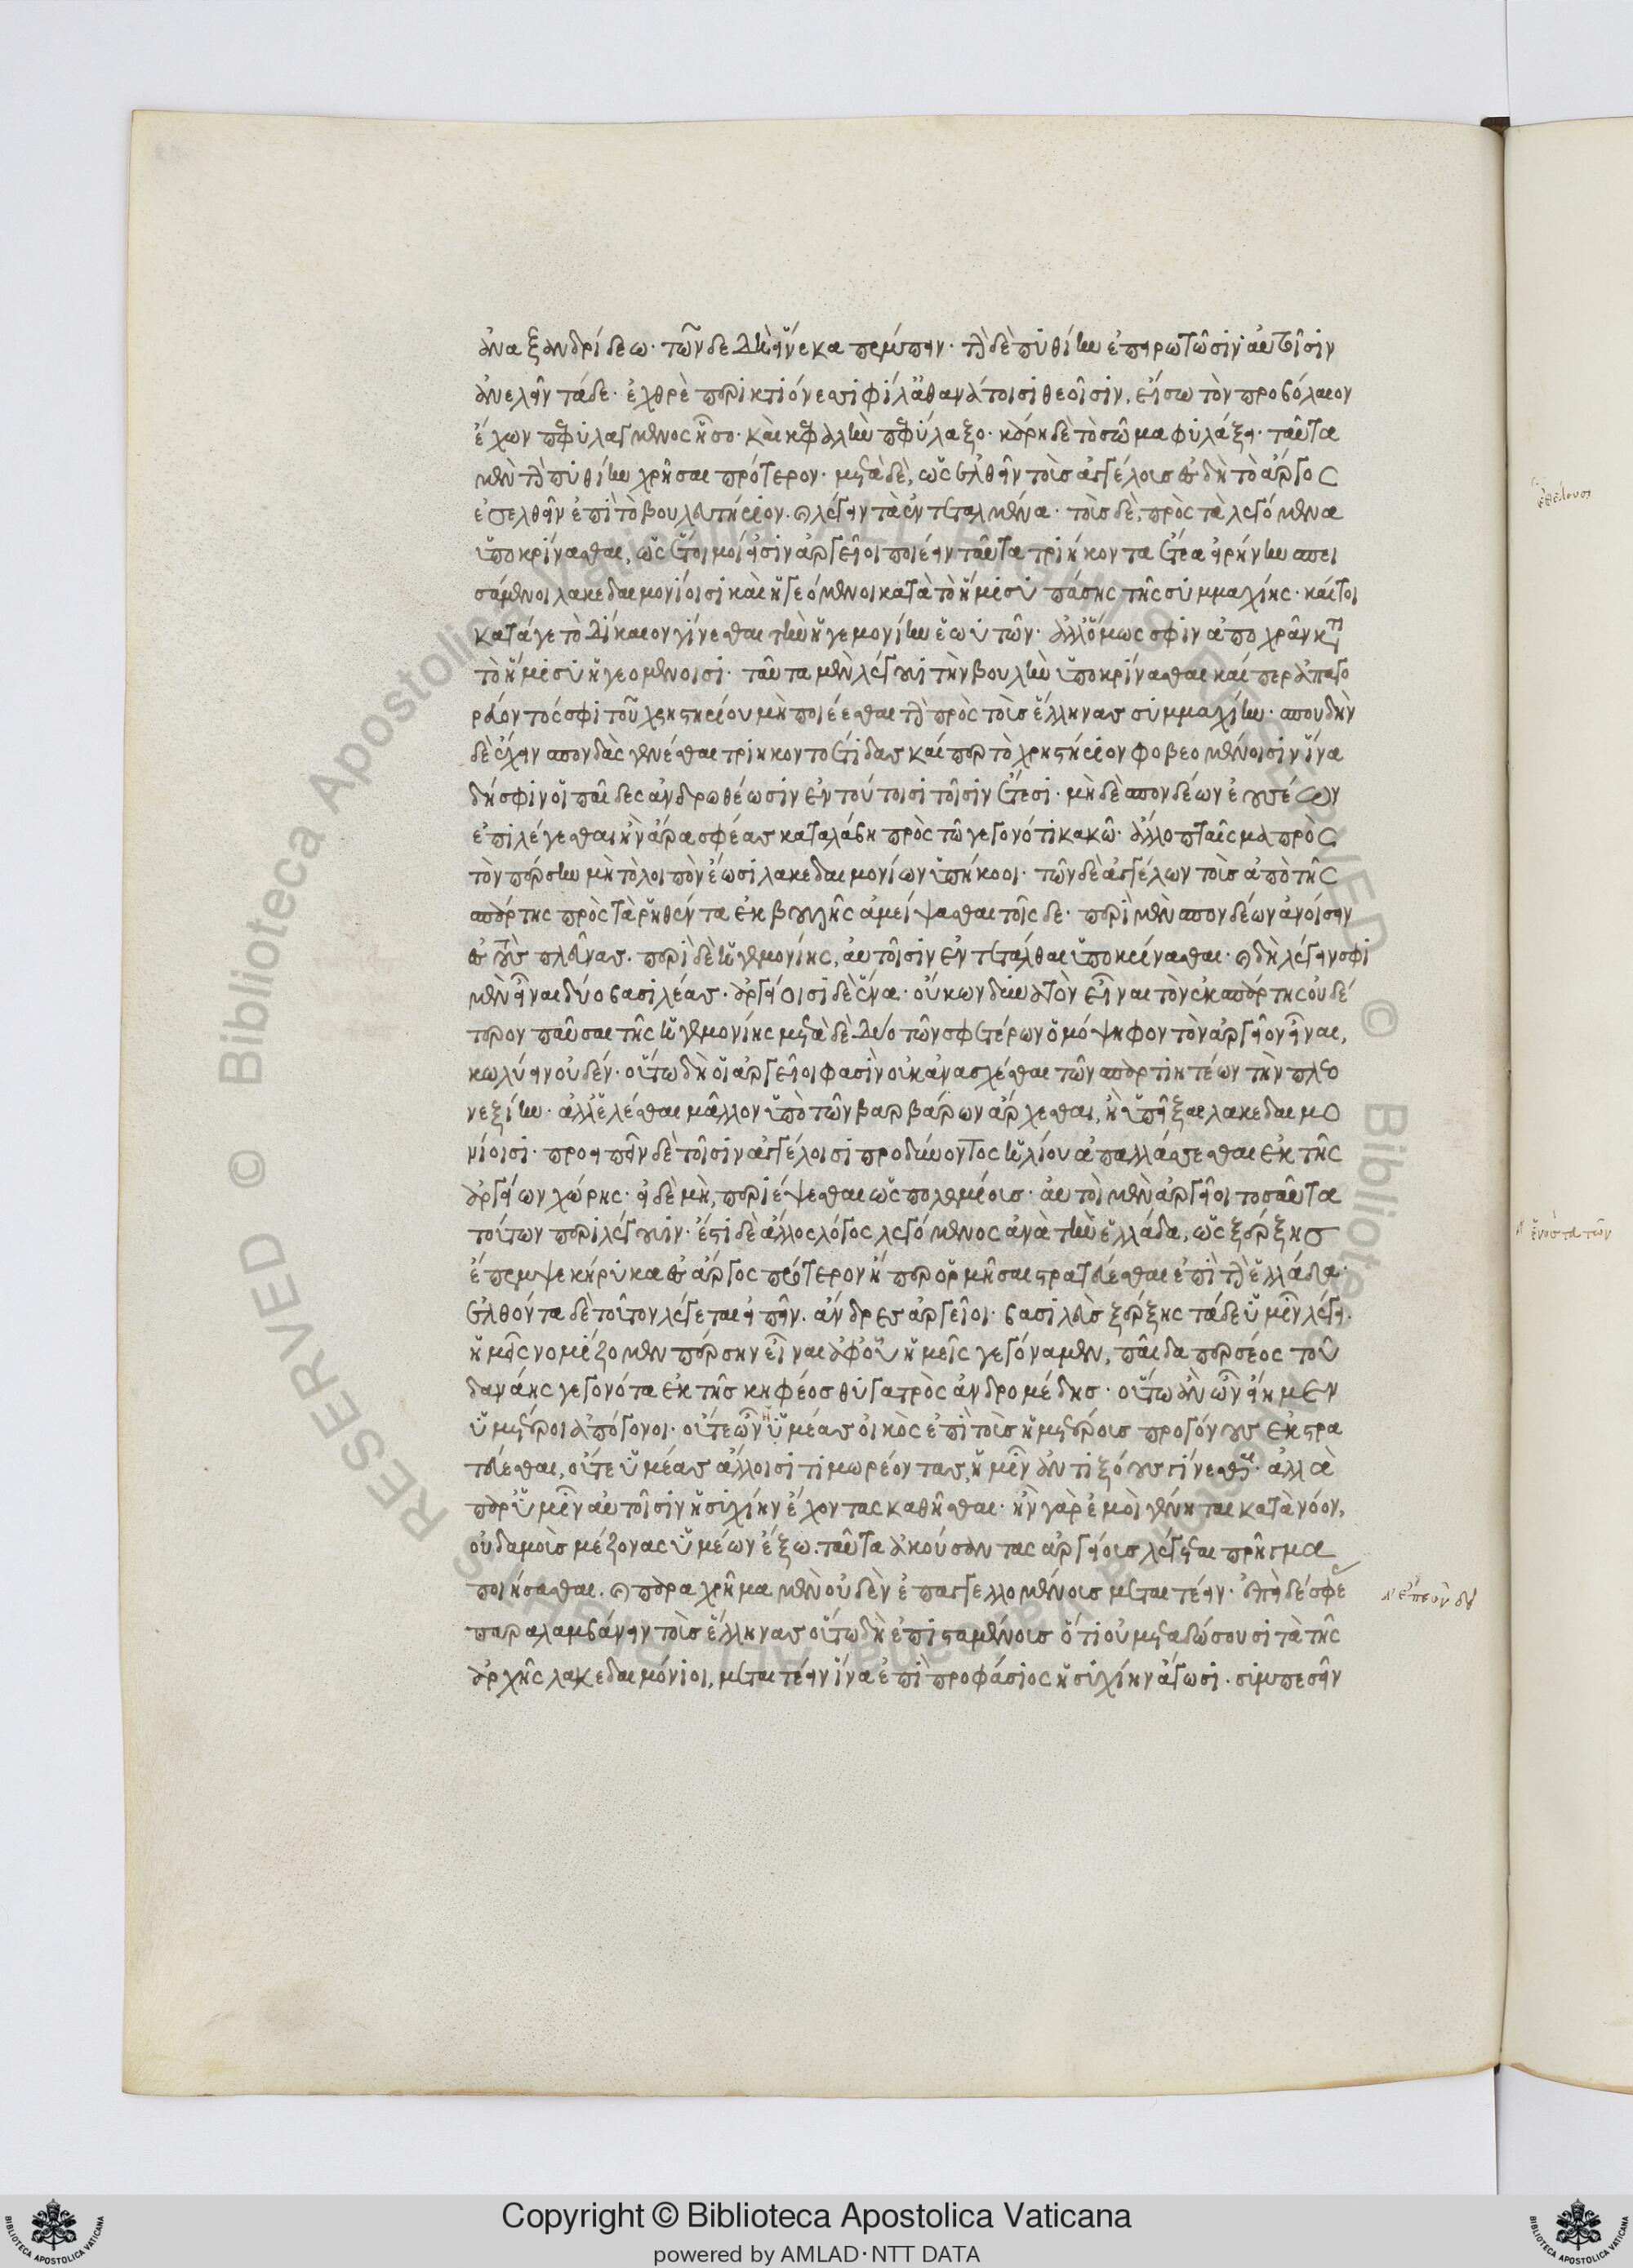 ἀναξανδρίδεω· τῶν δε δὴ εἵνεκα πέμπειν· τὴν δὲ πυθίην ἐπειρωτῶσιν αὐτοῖσιν
ἀνελεῖν τάδε· ἐχθρὲ περικτιόνεσσι φίλ' ἀθανάτοισι θεοῖσιν, εἴσω τὸν προβόλαιον
ἔχων πεφυλαγμένος ἧσο· καὶ κεφαλὴν πεφύλαξο· κάρη δὲ τὸ σῶμα φυλάξει· ταῦτα
μὲν τὴν πυθίην χρῆσαι πρότερον· μετὰ δὲ, ὡς ἐλθεῖν τοὺς ἀγγέλους ἐς δὴ τὸ ἄργος
ἐσελθεῖν ἐπὶ τὸ βουλευτήριον· καὶ λέγειν τὰ ἐντεταλμένα· τοὺς δὲ, πρὸς τὰ λεγόμενα
ὑποκρίνασθαι, ὡς ἕτοιμοί εἰσιν ἀργεῖοι ποιέειν ταῦτα τριήκοντα ἔτεα εἰρήνην σπει
σάμενοι λακεδαιμονίοισι καὶ ἡγεόμενοι κατὰ τὸ ἥμισυ πάσης τῆς συμμαχίης· καίτοι
κατά γε τὸ δίκαιον γίνεσθαι τὴν ἡγεμονίην ἑωυτῶν· ἀλλ' ὅμως σφιν ἀποχρᾶν κατὰ
τὸ ἥμισυ ἡγεομένοισι· ταῦτα μὲν λέγουσι τὴν βουλὴν ὑποκρίνασθαι καίπερ ἀπαγο
ρεύοντός σφι τοῦ χρηστηρίου μὴ ποιέεσθαι τὴν πρὸς τοὺς ἕλληνας συμμαχίην· σπουδὴν
δὲ ἔχειν σπονδὰς γενέσθαι τριηκοντοέτιδας καίπερ τὸ χρηστήριον φοβεομένοισιν ἵνα
δή σφιν οἱ παῖδες ἀνδρωθέωσιν ἐν τούτοισι τοῖσιν ἔτεσι· μὴ δὲ σπονδέων ἐουσέων
ἐπιλέγεσθαι ἢν ἄρα σφέας καταλάβῃ πρὸς τῶ γεγονότι κακῶ· ἄλλο πταῖσμα πρὸς
τὸν πέρσην μὴ τὸ λοιπὸν ἔωσι λακεδαιμονίων ὑπήκοοι· τῶν δὲ ἀγγέλων τοὺς ἀπὸ τῆς
σπάρτης πρὸς τὰ ῥηθέντα ἐκ βουλῆς ἀμείψασθαι τοῖς δε· περὶ μὲν σπονδέων ἀνοίσειν
ἐς τοὺς πλεῦνας. περὶ δὲ ἡγεμονίης, αὐτοῖσιν ἐντετάλθαι ὑποκρίνασθαι· καὶ δὴ λέγειν σφι
μὲν εἶναι δύο βασιλέας· ἀργείοισι δὲ ἕνα· οὔκων δυνατὸν εἶναι τὸν ἐκ σπάρτης οὐδέ
τερον παῦσαι τῆς ἡγεμονίης μετὰ δὲ δύο τῶν σφετέρων ὁμόψηφον τὸν ἀργεῖον εἶναι,
κωλύειν οὐδέν· οὕτω δὴ οἱ ἀργεῖοι φασὶν οὐκ ἀνασχέσθαι τῶν σπαρτιητέων τὴν πλεο
νεξίην· ἀλλ' ἑλέσθαι μᾶλλον ὑπὸ τῶν βαρβάρων ἄρχεσθαι, ἢ ὑπεῖξαι λακεδαιμο
νίοισι· προειπεῖν δὲ τοῖσιν ἀγγέλοισι πρὸ δύνοντος ἡλίου ἀπαλλάσσεσθαι ἐκ τῆς
ἀργείων χώρης· εἰ δὲ μὴ, περιέψεσθαι ὡς πολεμίους· αὐτοὶ μὲν ἀργεῖοι τοσαῦτα
τούτων περὶ λέγουσιν· ἔστι δὲ ἄλλος λόγος λεγόμενος ἀνὰ τὴν ἑλλάδα, ὡς ξέρξης
ἔπεμψε κήρυκα ἐς ἄργος πρότερον ἤ περ ὁρμῆσαι στρατεύεσθαι ἐπὶ τὴν ἑλλάδα·
ἐλθόντα δὲ τοῦτον λέγεται εἰπεῖν. ἄνδρες ἀργεῖοι· βασιλεὺς ξέρξης τάδε ὑμῖν λέγει.
ἡμεῖς νομίζομεν πέρσην εἶναι ἀφ' οὗ ἡμεῖς γεγόναμεν, παῖδα περσέος τοῦ
δανάης γεγονότα ἐκ τῆς κηφέος θυγατρὸς ἀνδρομέδης· οὕτω ἂν ὦν εἴημεν
ὑμέτεροι ἀπόγονοι· οὔτε ὦν ὑμέας οἰκὸς ἐπὶ τοὺς ἡμετέρους προγόνους ἐκστρα
τεύεσθαι, οὔτε ὑμέας ἄλλοισι τιμωρέοντας, ἡμῖν ἀντιξόους γίνεσθαι· ἀλλὰ
παρ' ὑμῖν αὐτοῖσιν ἡσυχίην ἔχοντας καθῆσθαι· ἢν γὰρ ἐμοὶ γένηται κατὰ νόον,
οὐδαμοὺς μέζονας ὑμέων ἔξω. ταῦτα ἀκούσαντας ἀργείους λέγεται πρῆγμα
ποιήσασθαι. καὶ παραχρῆμα μὲν οὐδὲν ἐπαγγελλομένους μεταιτέειν· ἐπεὶ δέ σφεας
παραλαμβάνειν τοὺς ἕλληνας οὕτω δὴ ἐπισταμένους ὅτι οὐ μεταδώσουσι τὰ τῆς
ἀρχῆς λακεδαιμόνιοι, μεταιτέειν ἵνα ἐπὶ προφάσιος ἡσυχίην ἄγωσι. συμπεσεῖν
Copyright © Biblioteca Apostolica Vaticana
powered by AMLAD·NTT DATA